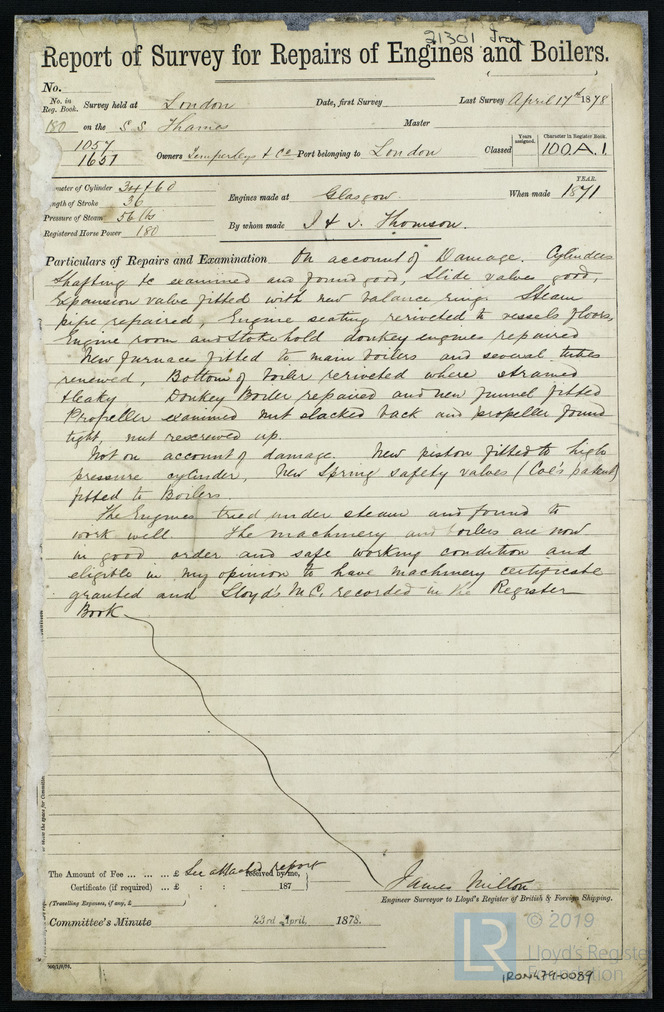 21301 Iron
Report of Survey for Repairs of Engines and Boilers.
No.
No. in Reg. Book. Survey held at London Date, first Survey Last Survey April 17th 1878
180 on the S.S. Thames Master
1057
1657 Owners Temperleys & Co Port belonging to London Classed Years assigned. Character in Register Book. 100.A.1.
meter of Cylinder 34 & 60
ngth of Stroke 36
Pressure of Steam 56 lbs
Registered Horse Power 180
Engines made at Glasgow.
By whom made J & G. Thomson.
YEAR.
When made 1871
Particulars of Repairs and Examination On account of Damage. Cylinders
shafting &c examined and found good, slide valves good,
Expansion valve fitted with new balance rings Steam
pipe repaired, Engine seating reriveted to vessels floors,
Engine room and Stokehold donkey engines repaired
New furnaces fitted to main boilers and several tubes
renewed, Bottom of boiler reriveted where strained
& leaky Donkey Boiler repaired and new funnel fitted
Propeller examined nut slacked back and propeller found
tight, nut rescrewed up.
Not on account of damage. New piston fitted to high
pressure cylinder, New Spring safety valves (Coe's patent)
fitted to Boilers.
The Engines tried under steam and found to
work well. The machinery and boilers are now
in good order and safe working condition and
eligible in my opinion to have machinery certificate
granted and Lloyd's M.C. recorded in the Register
Book
The Amount of Fee ... ... ... £ See attached report received by me,
Certificate (if required) ... £ : : 187
(Travelling Expenses, if any, £ )
James Milton
Engineer Surveyor to Lloyd's Register of British & Foreign Shipping.
Committee's Minute 23rd April. 1878.
LR © 2019
Lloyd's Registe
Foundation
IRON479-0089